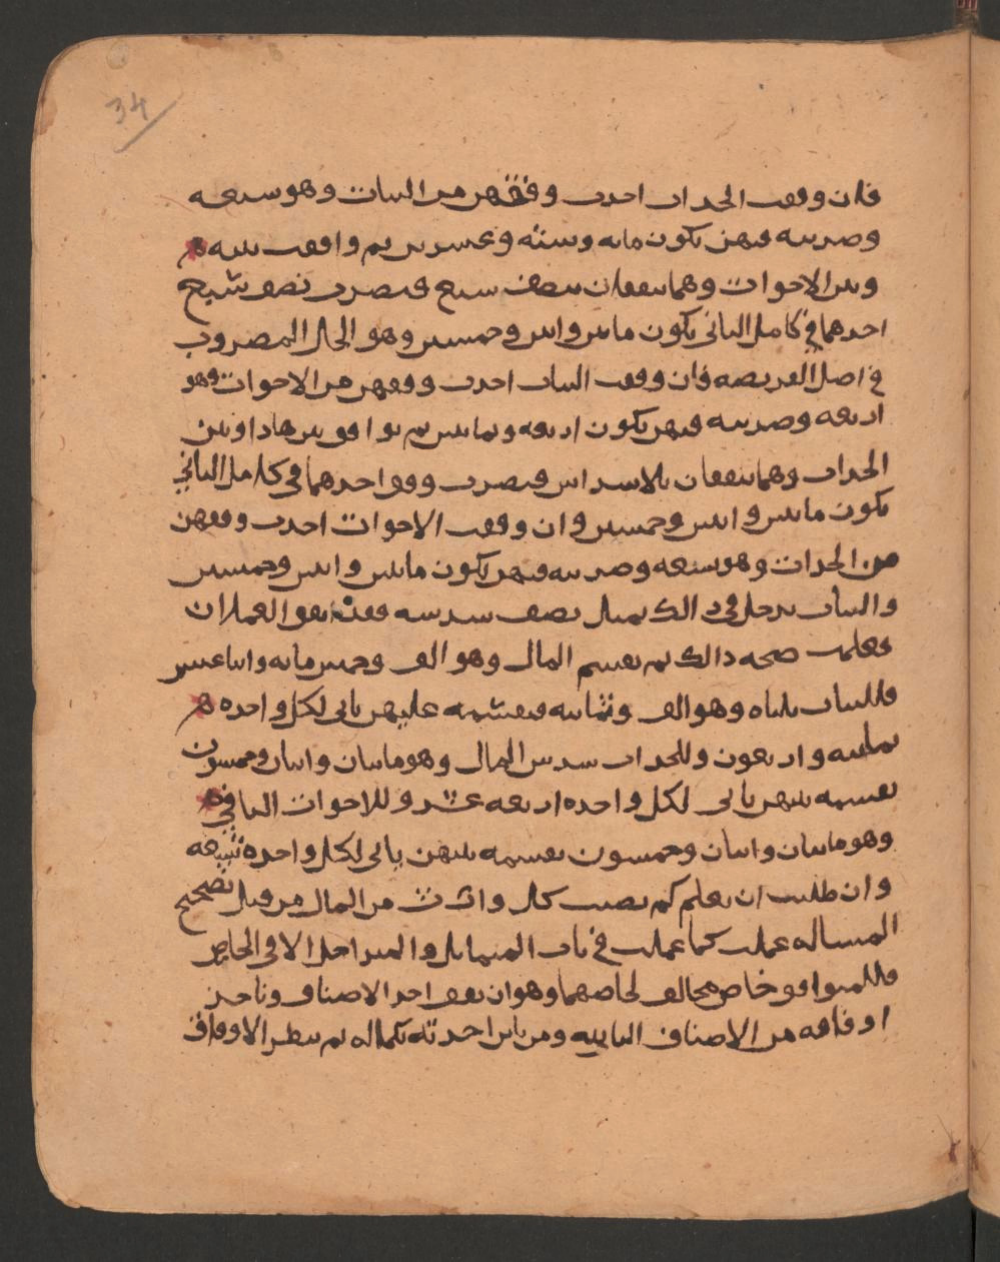 34
فان وقفت الجدات اخدت وفقهن من البنات وهو سبعه
وضربته فيهن يكون مايه وسته وعشرين ثم وافقت بينه
وبين الاخوات وهما يتفقان بنصف سبع فتضرب نصف سبع
احدهما في كامل الثاني يكون مايتين واثنين وخمسين وهو الحال المضروب
في اصل الفريضه فان وقفت البنات اخدت وفقهن من الاخوات وهو
اربعه وضربته فيهن يكون اربعه وثمانين ثم توافق بين هاذا وبين
الجدات وهما يتفقان بالاسداس فتضرب وفق احدهما في كامل الثاني
يكون مايتين واثنين وخمسين وان وقفت الاخوات اخدت وفقهن
من الجدات وهو سبعه وضربته فيهن يكون مايتين واثنين وخمسين
والبنات يدخل في ذالك بمثل نصف سدسه فقد اتفق العملان
فعلمت صحه ذالك ثم تقسم المال وهو الف وخمس مايه واثنا عشر
فللبنات ثلثاه وهو الف وثمانيه فتقسمه عليهن ياتي لكل واحده
ثمانيه واربعون وللجدات سدس المال وهو مايتان واثنان وخمسون
تقسمه بينهن ياتي لكل واحده اربعه عشر وللاخوات الباقي
وهو مايتان واثنان وخمسون تقسمه بينهن ياتي لكل واحده تسعه
وان طلبت ان تعلم كم نصيب كل وارث من المال من قبل تصحيح
المساله عملت كما عملت في باب المتماثل والمتداخل الا في الخاص
فللمتوافق خاص مخالف لخاصهما وهو ان تقف احد الاصناف وتاخذ
اوفاقه من الاصناف الباقيه ومن باين اخدته بكماله ثم تنظر الاوفاق